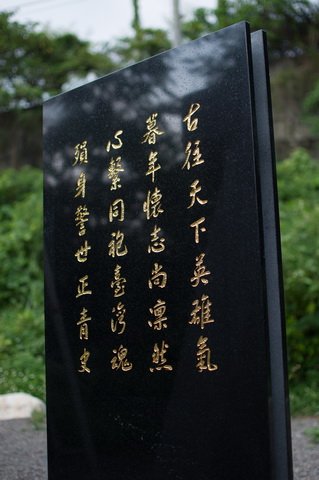 古往天下英雄氣
暮年懷志尚凜然
心繫同袍臺灣魂
殞身警世正青史